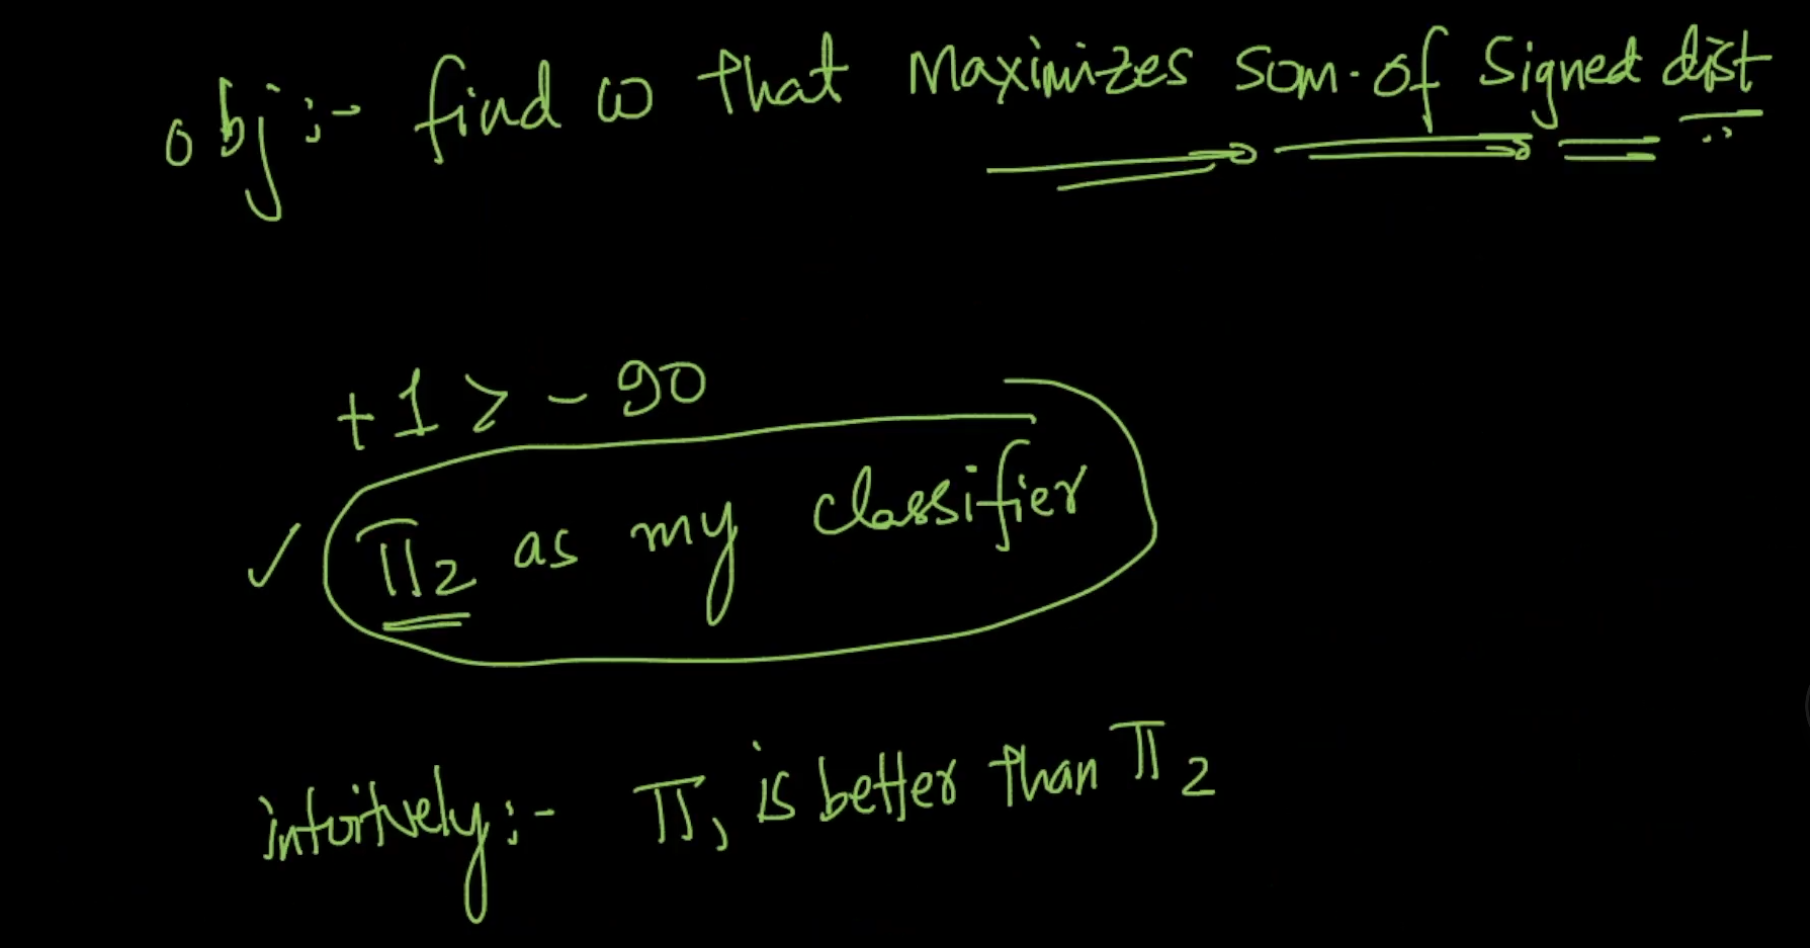 obj:- find w that Maximizes sum-of signed dist
+1 > - 90
✓ π2 as my classifier
intuitvely:- π1 is better than π2